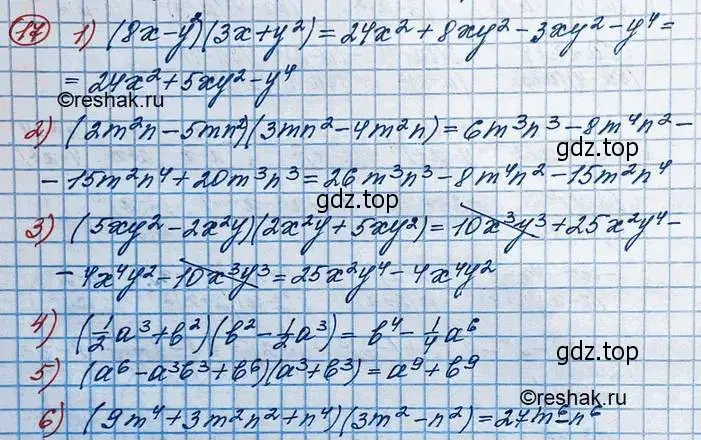 17 1) (8x-y²)(3x+y²)=24x²+8xy²-3xy²-y⁴=
=24x²+5xy²-y⁴
©reshak.ru
2) (2m²n-5mn²)(3mn²-4m²n)=6m³n³-8m⁴n²-
гдз.top
-15m²n⁴+20m³n³=26m³n³-8m⁴n²-15m²n⁴
3) (5xy²-2x²y)(2x²y+5xy²)=10x³y³+25x²y⁴-
-4x⁴y²-10x³y³=25x²y⁴-4x⁴y²
©reshak.ru
4) (1/2a³+b²)(b²-1/2a³)=b⁴-1/4a⁶
гдз.top
5) (a⁶-a³b³+b⁶)(a³+b³)=a⁹+b⁹
гдз.top
6) (9m⁴+3m²n²+n⁴)(3m²-n²)=27m⁶-n⁶